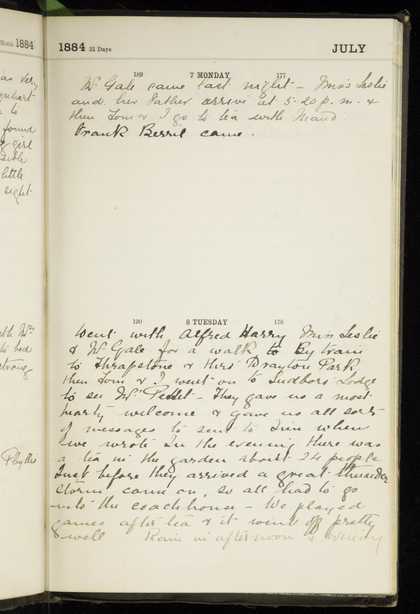 1884
as very
to
found
girl
little
sight
Mrs
to bed
strong
Phyllis
1884 31 Days JULY
189 7 MONDAY 177
W Gale came last night - Miss Leslie
and her Father arrive at 5.20 p.m. &
then Tom & I go to tea with Maud
Frank Berril came.
190 8 TUESDAY 176
Went with Alfred Harry Miss Leslie
& W Gale for a walk to By train
to Thrapstone & thro' Drayton Park,
then Tom & I went on to Sudboro Lodge
to see W Pettet - They gave us a most
hearty welcome & gave us all sorts
of messages to send to Jim when
we wrote In the evening there was
a tea in the garden about 24 people
Just before they arrived a great thunder
storm came on, so all had to go
into the coachhouse - We played
games after tea & it went off pretty
well Rain in afternoon &